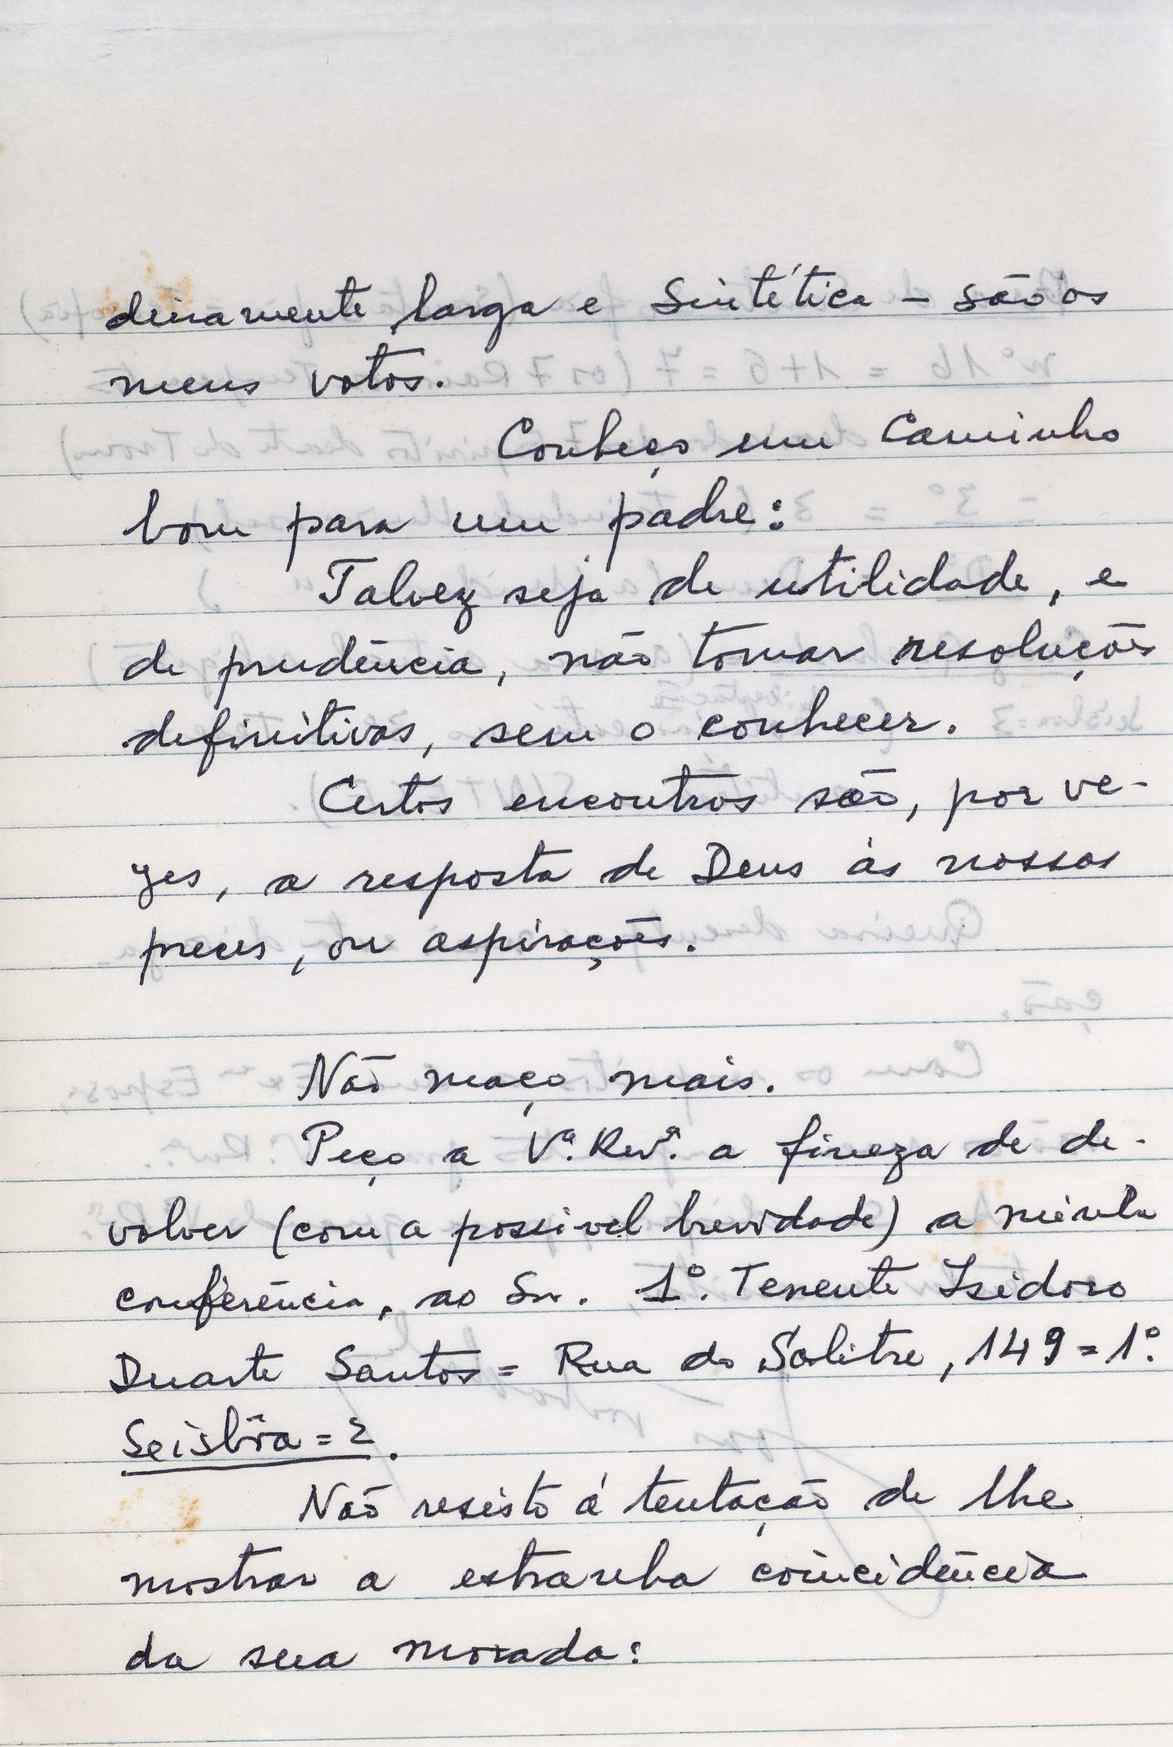 dinamente larga e Sintética – são os
meus votos.
Conheço um Caminho
bom para um padre:
Talvez seja de utilidade, e
de prudência, não tomar resoluções
definitivas, sem o conhecer.
Certos encontros são, por ve-
zes, a resposta de Deus ás nossas
preces, ou aspirações.
Não maço mais.
Peço a Vª. Revª. a fineza de de-
volver (com a possivel brevidade) a minha
conferência, ao Snr. 1º. Tenente Isidoro
Duarte Santos = Rua do Salitre, 149=1º.
Seisbôa = 2.
Não resisto á tentação de lhe
mostrar a estranha coincidência
da sua morada: